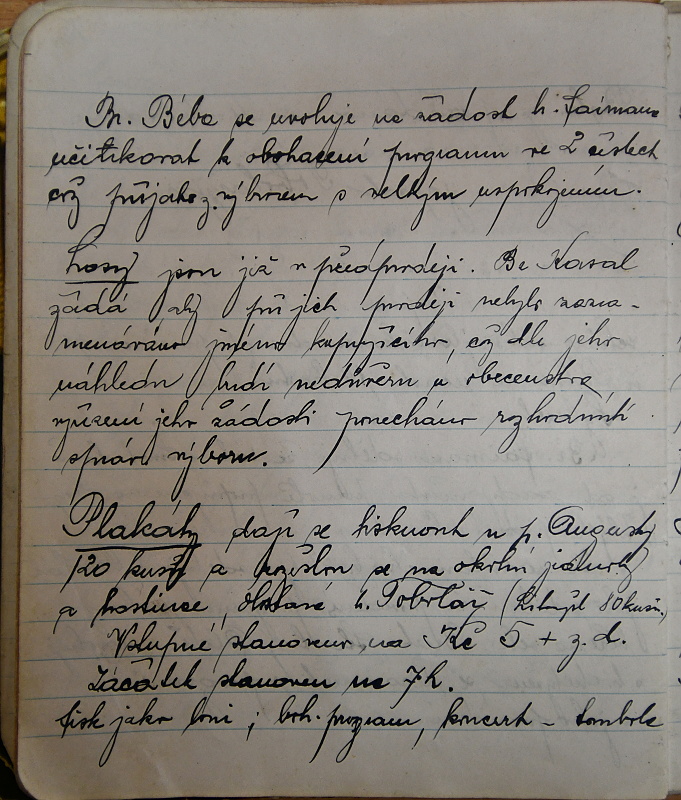 Br. Béba se uvoluje na žádost b. Faimana
učitikovat k obohacení programu ve 2 číslech
což přijato z výborem s velkým uspokojením.
Losy jsou již v předprodeji. Br Kasal
žádá aby při jich prodeji nebylo zazna-
menáváno jméno kupujícího, což dle jeho
náhledu budí nedůvěru u obecenstva
vyřízení jeho žádosti ponecháno rozhodnutí
správ. výboru.
Plakáty dají se tisknout u p. Augusty
120 kusů a rozešlou se na okolní jednoty
a hostince, obstará b.
Vstupné stanoveno na Kč 5 + z. d.
Začátek stanoven na 7 h.
tisk jako loni, boh. program, koncert – tombola